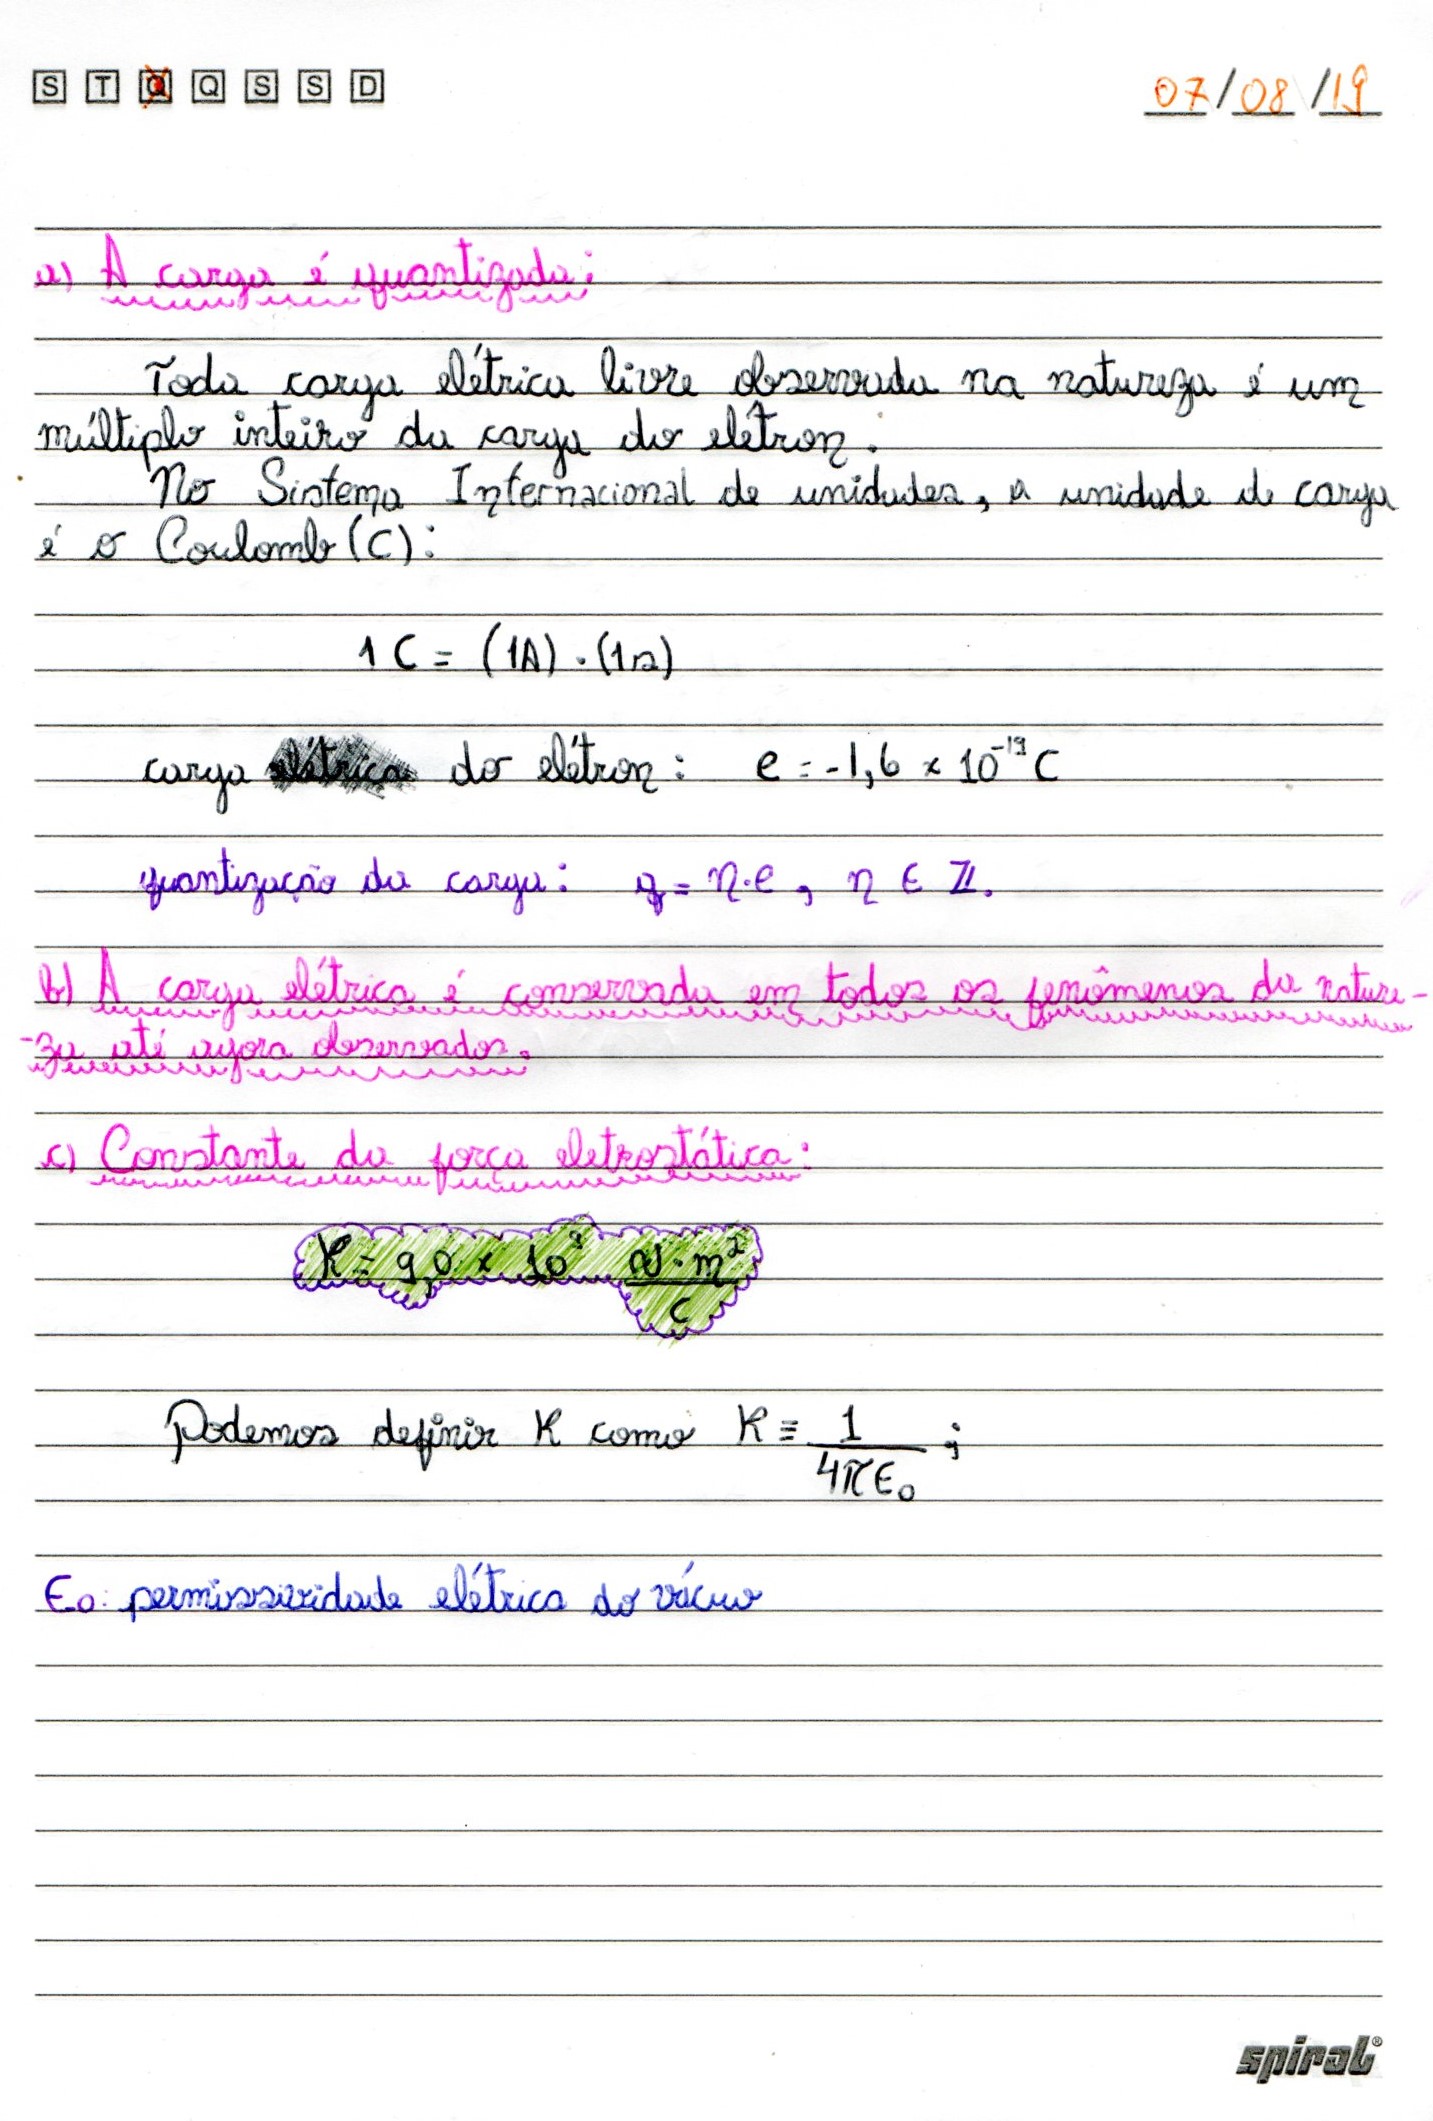 S T Q Q S S D 07/08/19
a) A carga é quantizada:
Toda carga elétrica livre observada na natureza é um
múltiplo inteiro da carga do elétron.
No Sistema Internacional de unidades, a unidade de carga
é o Coulomb (C):
1 C = (1A) . (1s)
carga elétrica do elétron: e = -1,6 × 10⁻¹⁹ C
quantização da carga: q = n.e, n ∈ ℤ.
b) A carga elétrica é conservada em todos os fenômenos da nature-
-za até agora observados.
c) Constante da força eletrostática:
K = 9,0 × 10⁹ N·m²
C
Podemos definir K como K ≡ 1 ;
4πε₀
ε₀: permissividade elétrica do vácuo
spiral®